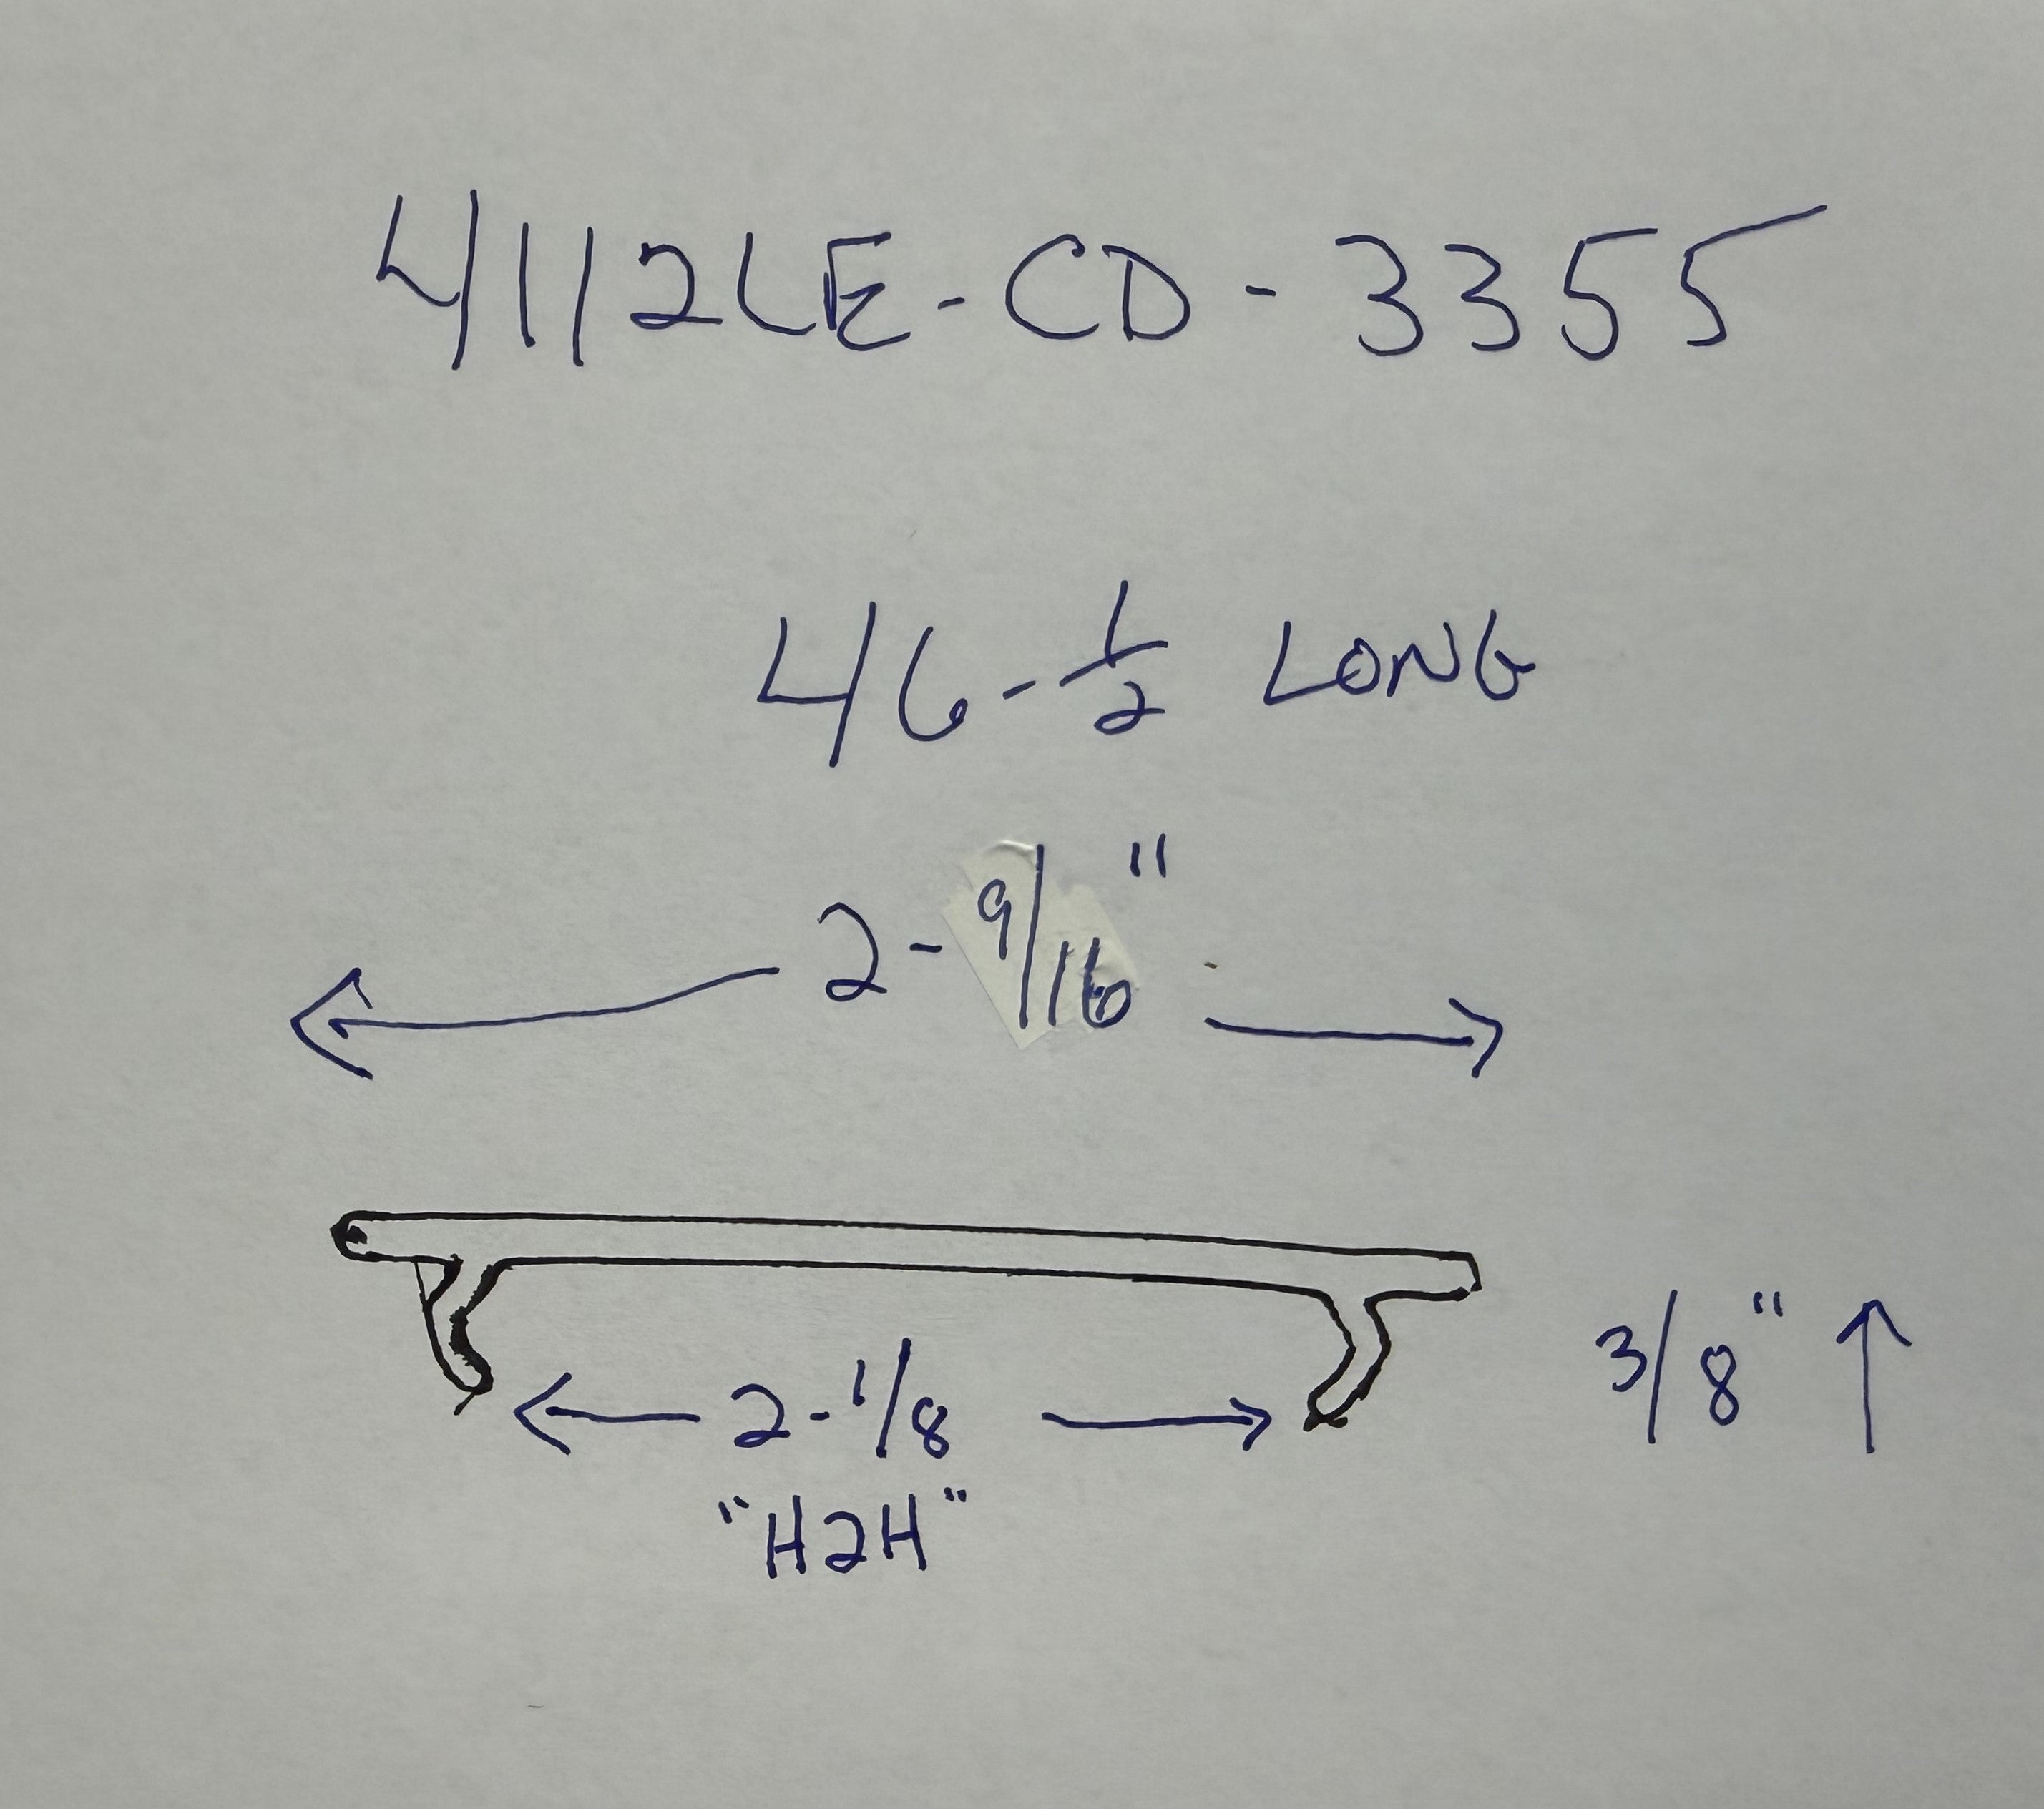 4112LE-CD-3355
46-1/2 LONG
2-9/16"
3/8"
2-1/8
"H2H"